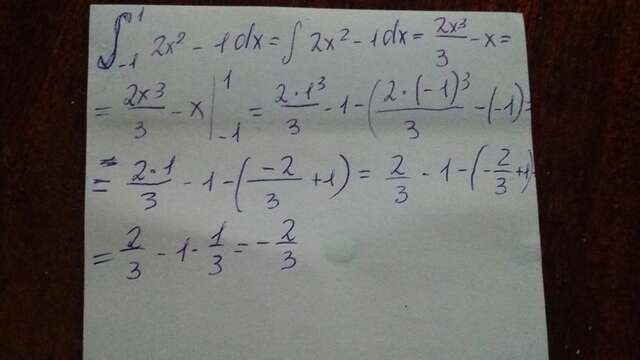 ∫₋₁¹ 2x² - 1dx = ∫ 2x² - 1dx = 2x³/3 - x =
= 2x³/3 - x |₋₁¹ = 2·1³/3 - 1 - (2·(-1)³/3 - (-1) =
= 2·1/3 - 1 - (-2/3 + 1) = 2/3 - 1 - (-2/3 + 1)
= 2/3 - 1 - 1/3 = -2/3